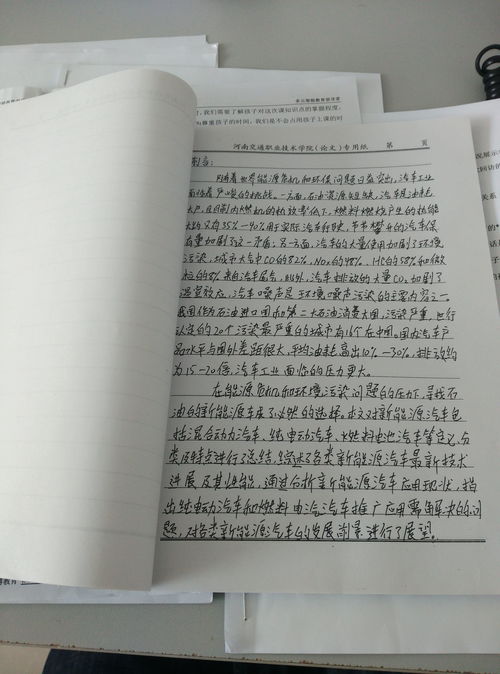 多元智能教育培训室
我们需要了解孩子对这次课知识点的掌握程度,
尊重孩子的时间,我们是不会占用孩子上课的时
河南交通职业技术学院(论文)专用纸 第 页
引言:
随着世界能源危机和环保问题日益突出,汽车工业
面临着严峻的挑战。一方面,石油资源短缺,汽车是油耗
大户,且目前内燃机的热效率低下,燃料燃烧产生的热能
大约只有35%-40%用于实际汽车行驶,节节攀升的汽车保
有量加剧了这一矛盾;另一方面,汽车的大量使用加剧了环境
污染,城市大气中CO的82%、NOx的48%、HC的58%和微
粒的8%来自汽车尾气,此外,汽车排放的大量CO₂加剧了
温室效应,汽车噪声是环境噪声污染的主要内容之一。
我国作为石油进口国和第二大石油消费大国,污染严重,世行
认定的20个污染最严重的城市有16个在中国。国内汽车产
品水平与国外差距很大,平均油耗高出10%-30%,排放约
为15-20倍,汽车工业面临的压力更大。
在能源危机和环境污染问题的压力下,寻找石
油的新能源车成了必然的选择。本文对新能源汽车包
括混合动力汽车、纯电动汽车、燃料电池汽车等定义、分
类及特点进行了总结,综述了各类新能源汽车最新技术
进展及其性能,通过分析新能源汽车应用现状,指
出纯电动汽车和燃料电池汽车推广应用需解决的问
题,对各类新能源汽车的发展前景进行了展望。